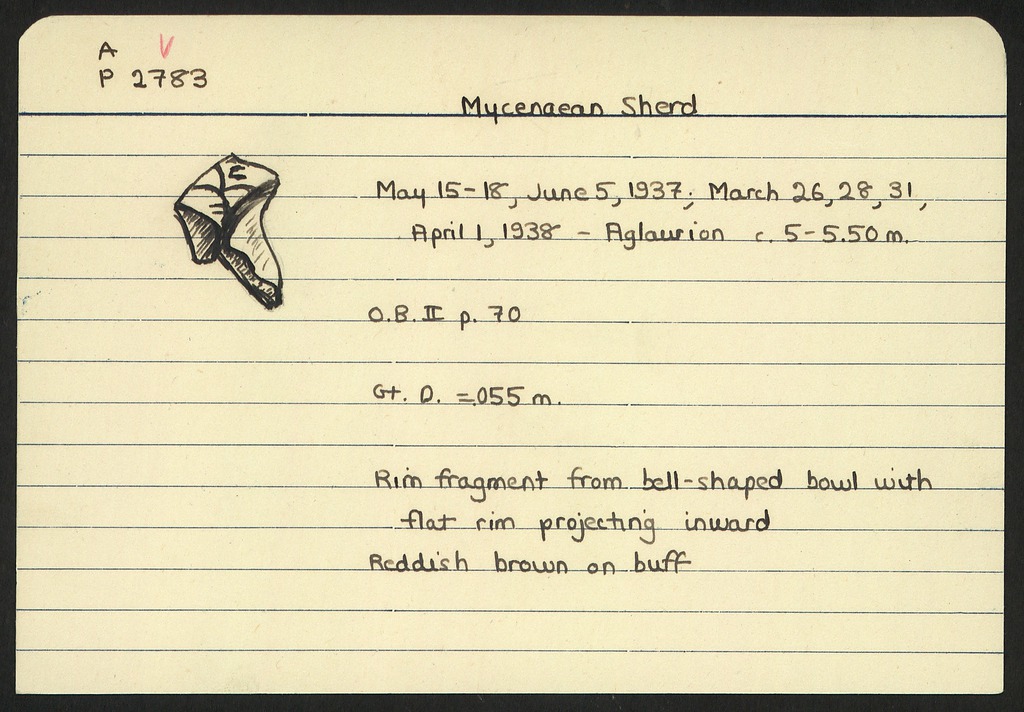 A V
P 2783
Mycenaean Sherd
May 15-18, June 5, 1937; March 26, 28, 31,
April 1, 1938 - Aglaurion c. 5-5.50 m.
O.B. II p. 70
Gt. D. = .055 m.
Rim fragment from bell-shaped bowl with
flat rim projecting inward
Reddish brown on buff